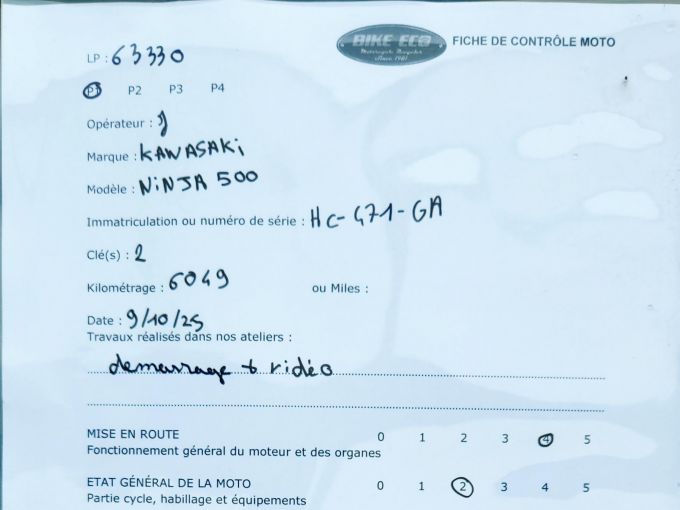 BIKE ECO
Motorcycle Recycler
Since 1981
FICHE DE CONTRÔLE MOTO
LP : 63330
P1 P2 P3 P4
Opérateur : J
Marque : KAWASAKi
Modèle : NiNJA 500
Immatriculation ou numéro de série : HC-471-GA
Clé(s) : 2
Kilométrage : 6049 ou Miles :
Date : 9/10/25
Travaux réalisés dans nos ateliers :
demarrage + vidéo
MISE EN ROUTE 0 1 2 3 4 5
Fonctionnement général du moteur et des organes
ETAT GÉNÉRAL DE LA MOTO 0 1 2 3 4 5
Partie cycle, habillage et équipements